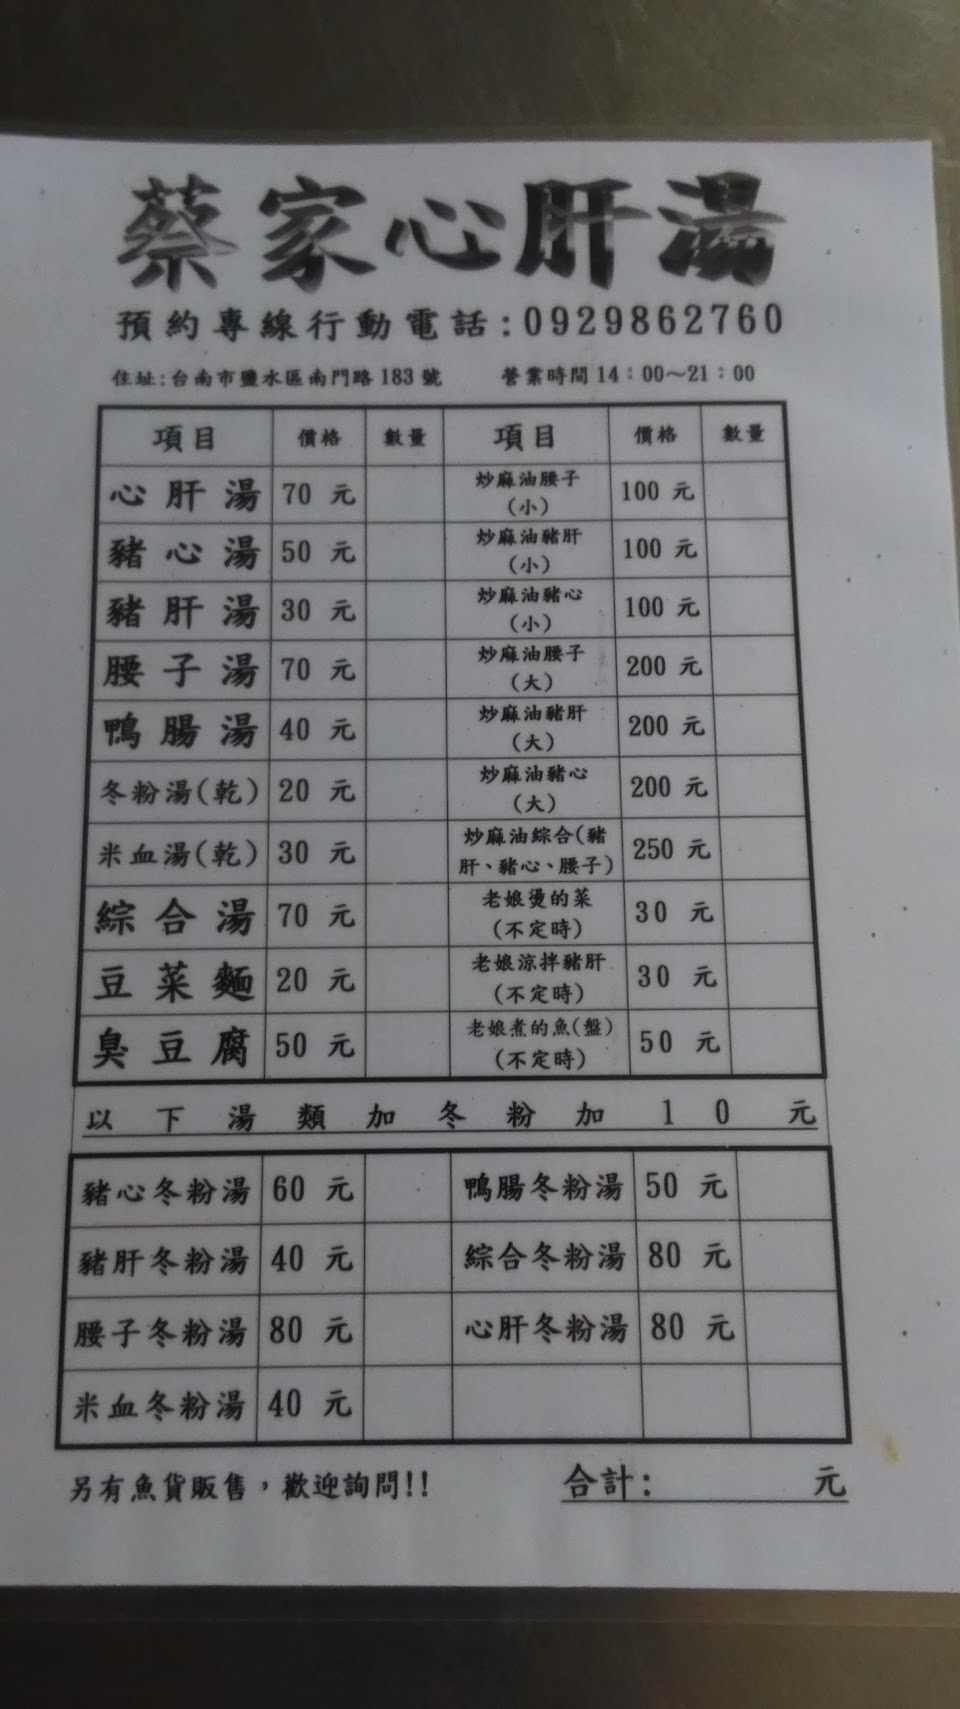 蔡家心肝湯
預約專線行動電話:0929862760
住址:台南市鹽水區南門路183號 營業時間14:00~21:00
項目 價格 數量 項目 價格 數量
心肝湯 70 元 炒麻油腰子(小) 100 元
豬心湯 50 元 炒麻油豬肝(小) 100 元
豬肝湯 30 元 炒麻油豬心(小) 100 元
腰子湯 70 元 炒麻油腰子(大) 200 元
鴨腸湯 40 元 炒麻油豬肝(大) 200 元
冬粉湯(乾) 20 元 炒麻油豬心(大) 200 元
米血湯(乾) 30 元 炒麻油綜合(豬肝、豬心、腰子) 250 元
綜合湯 70 元 老娘燙的菜(不定時) 30 元
豆菜麵 20 元 老娘涼拌豬肝(不定時) 30 元
臭豆腐 50 元 老娘煮的魚(盤)(不定時) 50 元
以下湯類加冬粉加10元
豬心冬粉湯 60 元 鴨腸冬粉湯 50 元
豬肝冬粉湯 40 元 綜合冬粉湯 80 元
腰子冬粉湯 80 元 心肝冬粉湯 80 元
米血冬粉湯 40 元
另有魚貨販售,歡迎詢問!! 合計: 元